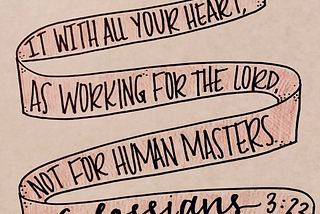 IT WITH ALL YOUR HEART,
AS WORKING FOR THE LORD,
NOT FOR HUMAN MASTERS.
Colossians 3:23